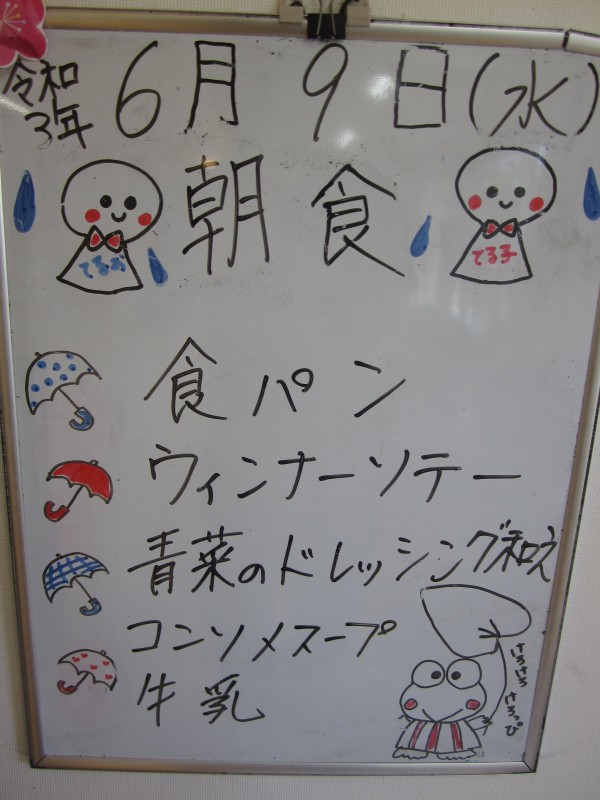 令和3年 6月9日(水)
朝食
てるお
てる子
食パン
ウィンナーソテー
青菜のドレッシング和え
コンソメスープ
牛乳
けろけろ
けろっぴ